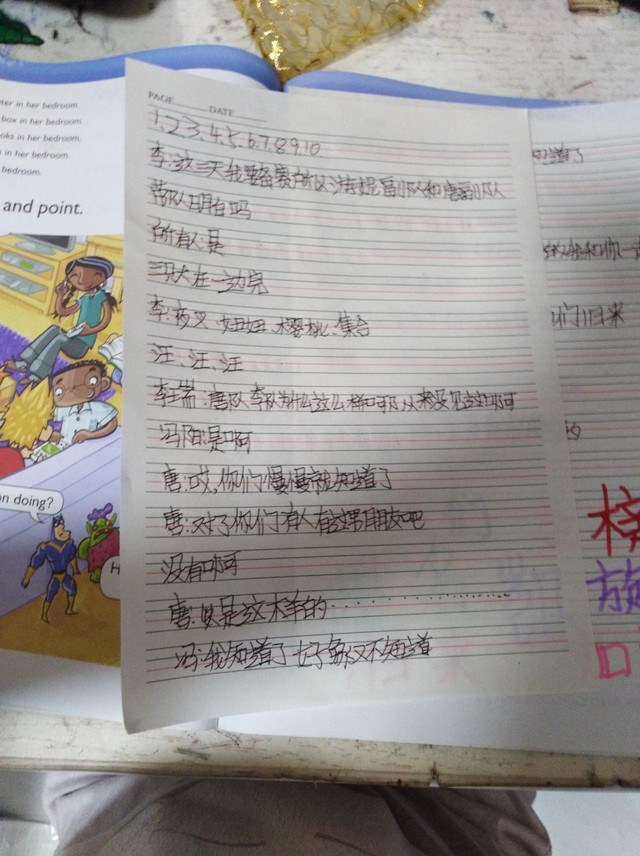 ter in her bedroom.
box in her bedroom.
oks in her bedroom.
s in her bedroom.
bedroom.
and point.
on doing?
H
PAGE DATE
1.2.3.4.5.6.7.8.9.10
李:这三天我要备赛所以法妞副队和唐副队
带队明白吗
所有人:是
三队大在一边完
李:夜叉、妞妞、樱桃、集合
汪、汪、汪
李瑞:唐队李队为什么这么称呼那从来没见过啊
冯阳:是啊
唐:哎,你们慢慢就知道了
唐:对了你们有人有这男朋友吧
没有啊
唐:以是这木羊的
冯:我知道了 好象又不知道
知道了
们归来
的